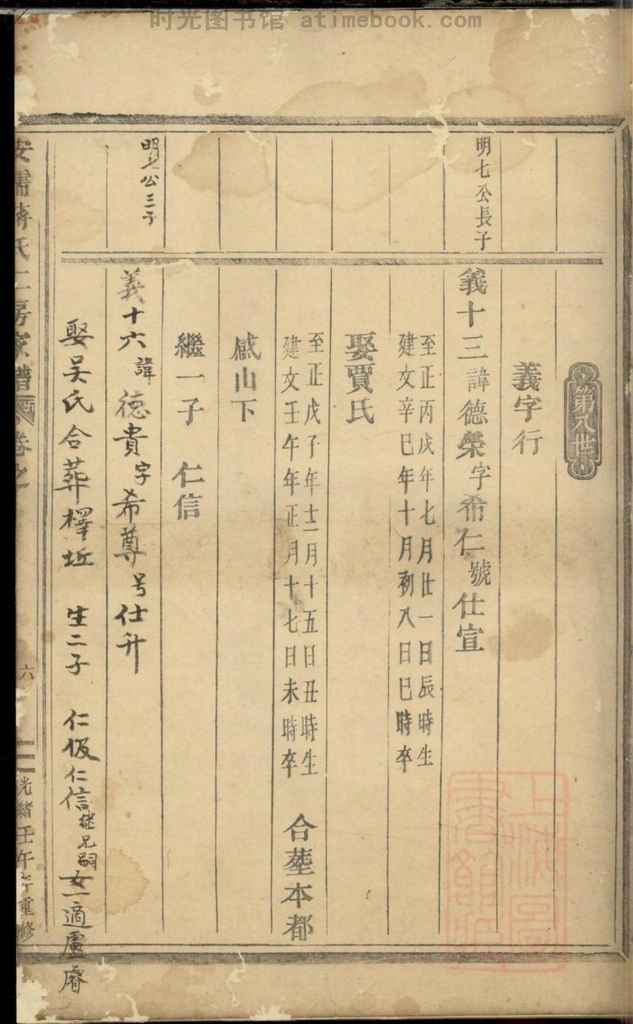 时光图书馆 atimebook.com
第八世
義字行
明七公長子
義十三諱德榮字希仁號仕宣
至正丙戌年七月廿一日辰時生
建文辛巳年十月初八日巳時卒
娶賈氏
至正戊子年十二月十五日丑時生
建文壬午年正月十七日未時卒
合塟本都
感山下
繼一子 仁信
明七公三子
義十六諱德貴字希尊号仕升
娶吴氏合葬檡坵 生二子 仁伋仁信継兄嗣 女一適盧
氏二房家譜
卷之
六
光緒壬午年重修